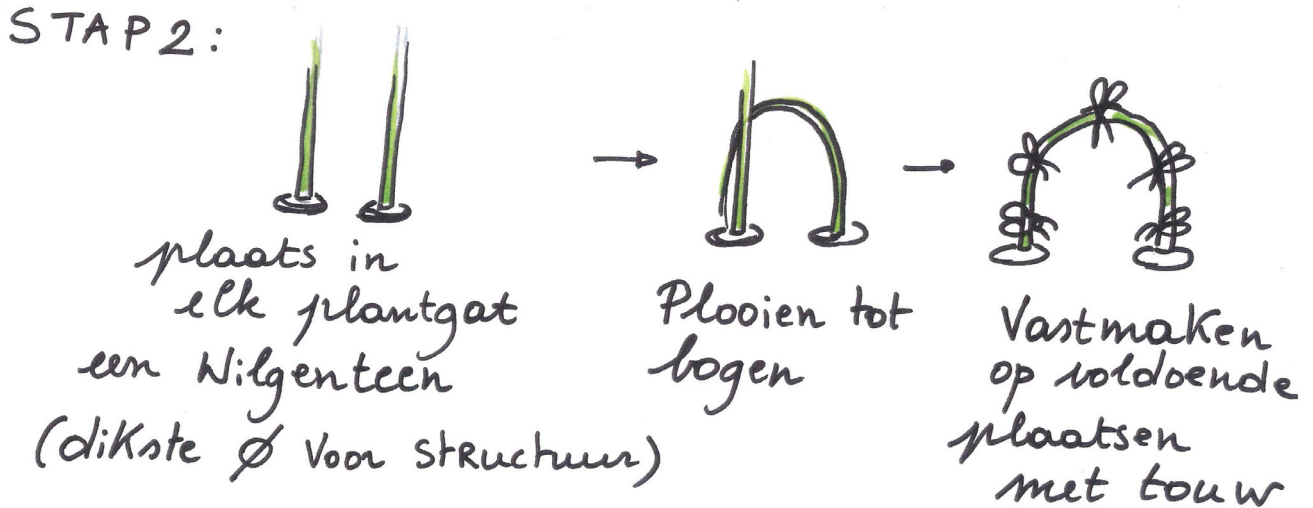 STAP 2:
plaats in
elk plantgat
een Wilgenteen
(dikste Ø voor structuur)
Plooien tot
bogen
Vastmaken
op voldoende
plaatsen
met touw